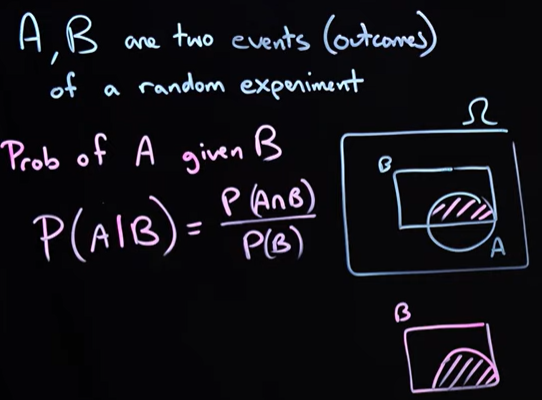 A, B are two events (outcomes)
of a random experiment
Ω
Prob of A given B
P(A|B) = P(A∩B) / P(B)
B
A
B